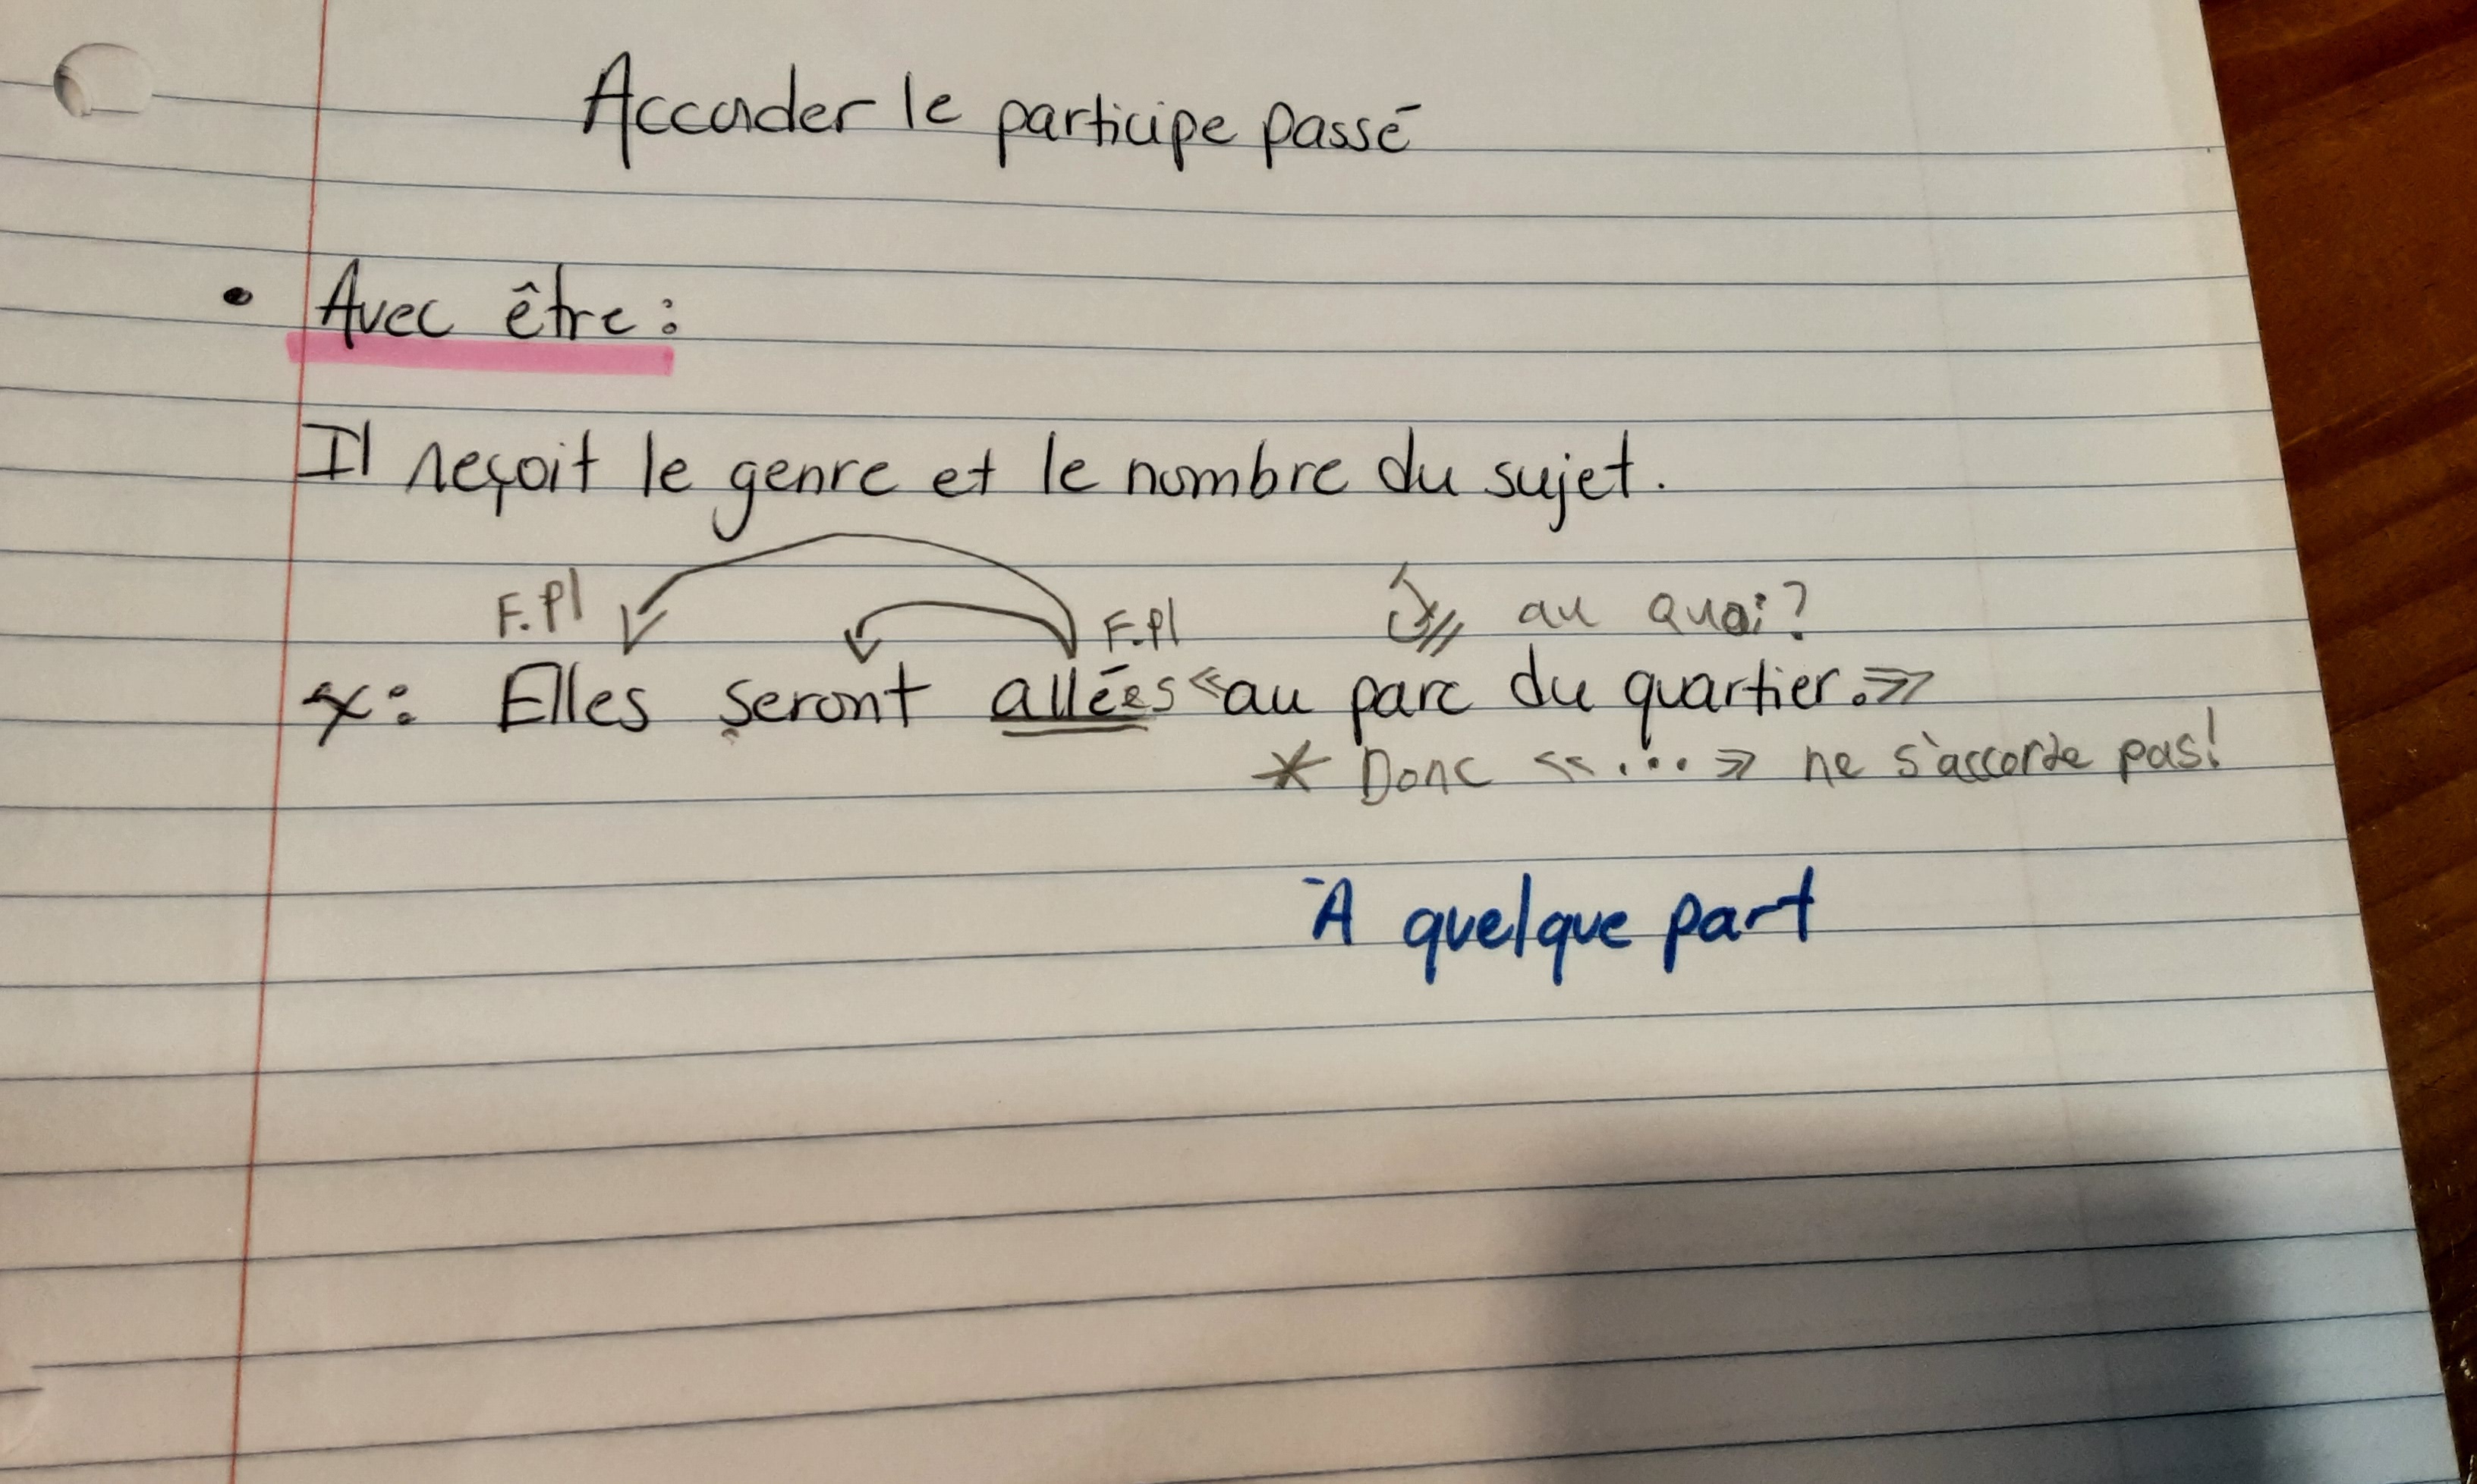 Accorder le participe passé
• Avec être :
Il reçoit le genre et le nombre du sujet.
F.Pl F.Pl au quoi ?
x : Elles seront allées «au parc du quartier.»
* Donc «...» ne s'accorde pas!
À quelque part